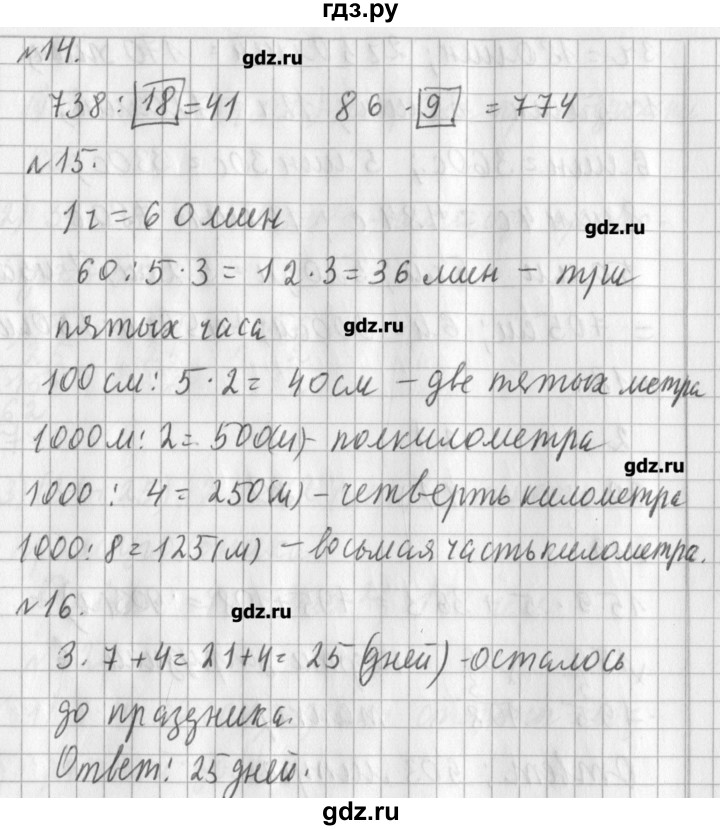 гдз.ру
№14.
gdz.ru
738 : 18 = 41 86 · 9 = 774
№15.
1ч = 60 мин
gdz.ru
60 : 5 · 3 = 12 · 3 = 36 мин – три
пятых часа
gdz.ru
100 см : 5 · 2 = 40 см – две пятых метра
1000 м : 2 = 500 (м) – полкилометра
gdz.ru
1000 : 4 = 250 (м) – четверть километра
1000 : 8 = 125 (м) – восьмая часть километра.
№16.
gdz.ru
3 · 7 + 4 = 21 + 4 = 25 (дней) – осталось
до праздника.
Ответ: 25 дней.
gdz.ru